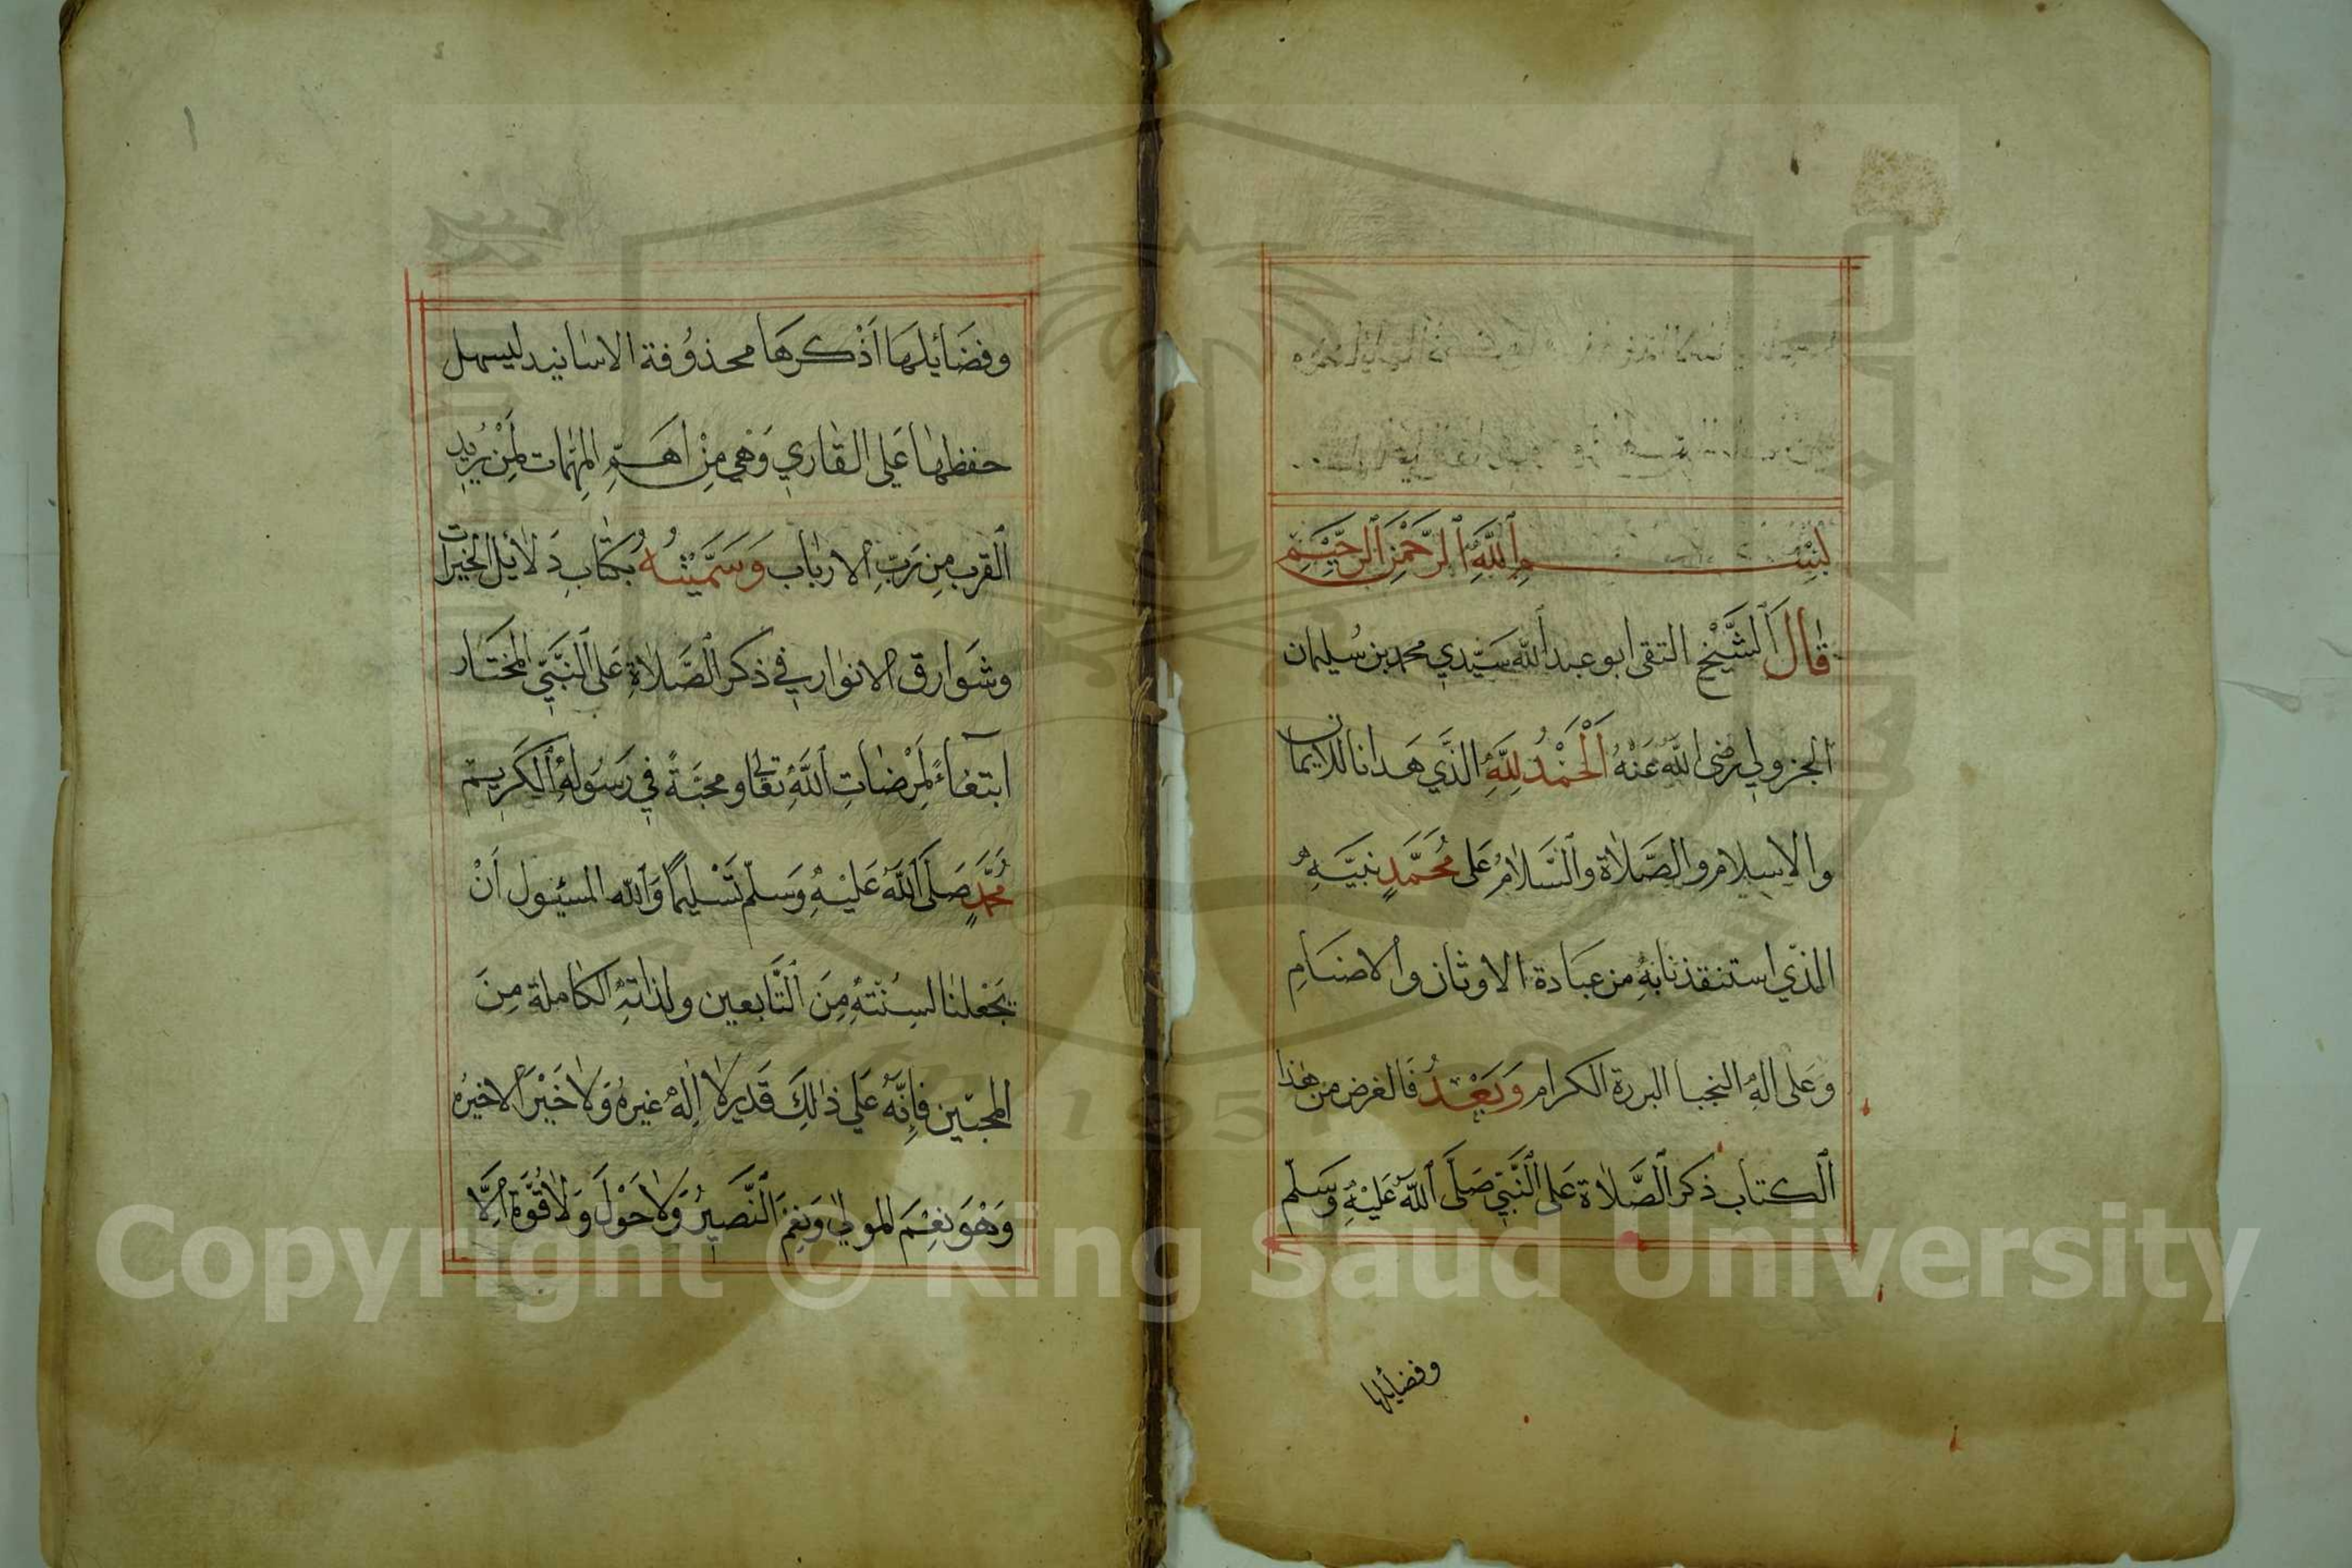 بِسْمِ اللَّهِ الرَّحْمٰنِ الرَّحِيْمِ
قَالَ الشَّيْخُ التقى ابو عبد الله سَيّدي محمد بن سُليمان
الجزولي رضى الله عَنْهُ اَلْحَمْدُ لِلّٰهِ الذَّي هَدانا للايمان
والاسِلام والصَّلاة والسَّلامُ عَلى مُحَمَّدٍ نبيَّهِ
الذّي استنقذنا بهِ من عبَادة الاوثان والاصنامِ
وَعَلى الهِ النجبا البررة الكرام وَبَعْدُ فَالغرض من هٰذا
الكتاب ذكر الصَّلاة عَلى النَّبيّ صَلَّى اللّٰهُ عَليْهِ وَسَلّم
وفضايلها
وفضَائلهَا اَذْكرهَا محذوُفة الاسانيد ليسهل
حفظها عَلى القاري وَهْي مِنْ اَهَمِّ المهِمّات لِمَنْ يُريد
القرب مِن رَبِّ الارباب وَسَمَّيْتُهُ بكتابِ دَلائل الخيرات
وشَوارق الانوار في ذكر الصَّلاةِ عَلى النَّبيّ المختَار
ابتغاءً لِمَرْضاتِ اللَّهِ تعَالى ومحبَّةً في رَسُولهِ الكَريم
مُحَمَّدٍ صَلَى اللّٰهُ عَليْهِ وَسَلّم تَسْليمًا وَالله المسئول اَنْ
يَجْعلنا لسِنُتّهِ مِنَ التَّابعين ولذاتهِ الكاملة مِنَ
المحبّين فإنَّهُ عَلي ذٰلِكَ قَدير لا اِلٰهَ غيرهُ وَلا خَيْرَ الا خيرُه
وَهْوَ نعِْمَ المولي وَنعِْمَ النَّصيرُ وَلا حَوْلَ وَلا قُوَّةَ اِلَّا
Copyright © King Saud University
1957